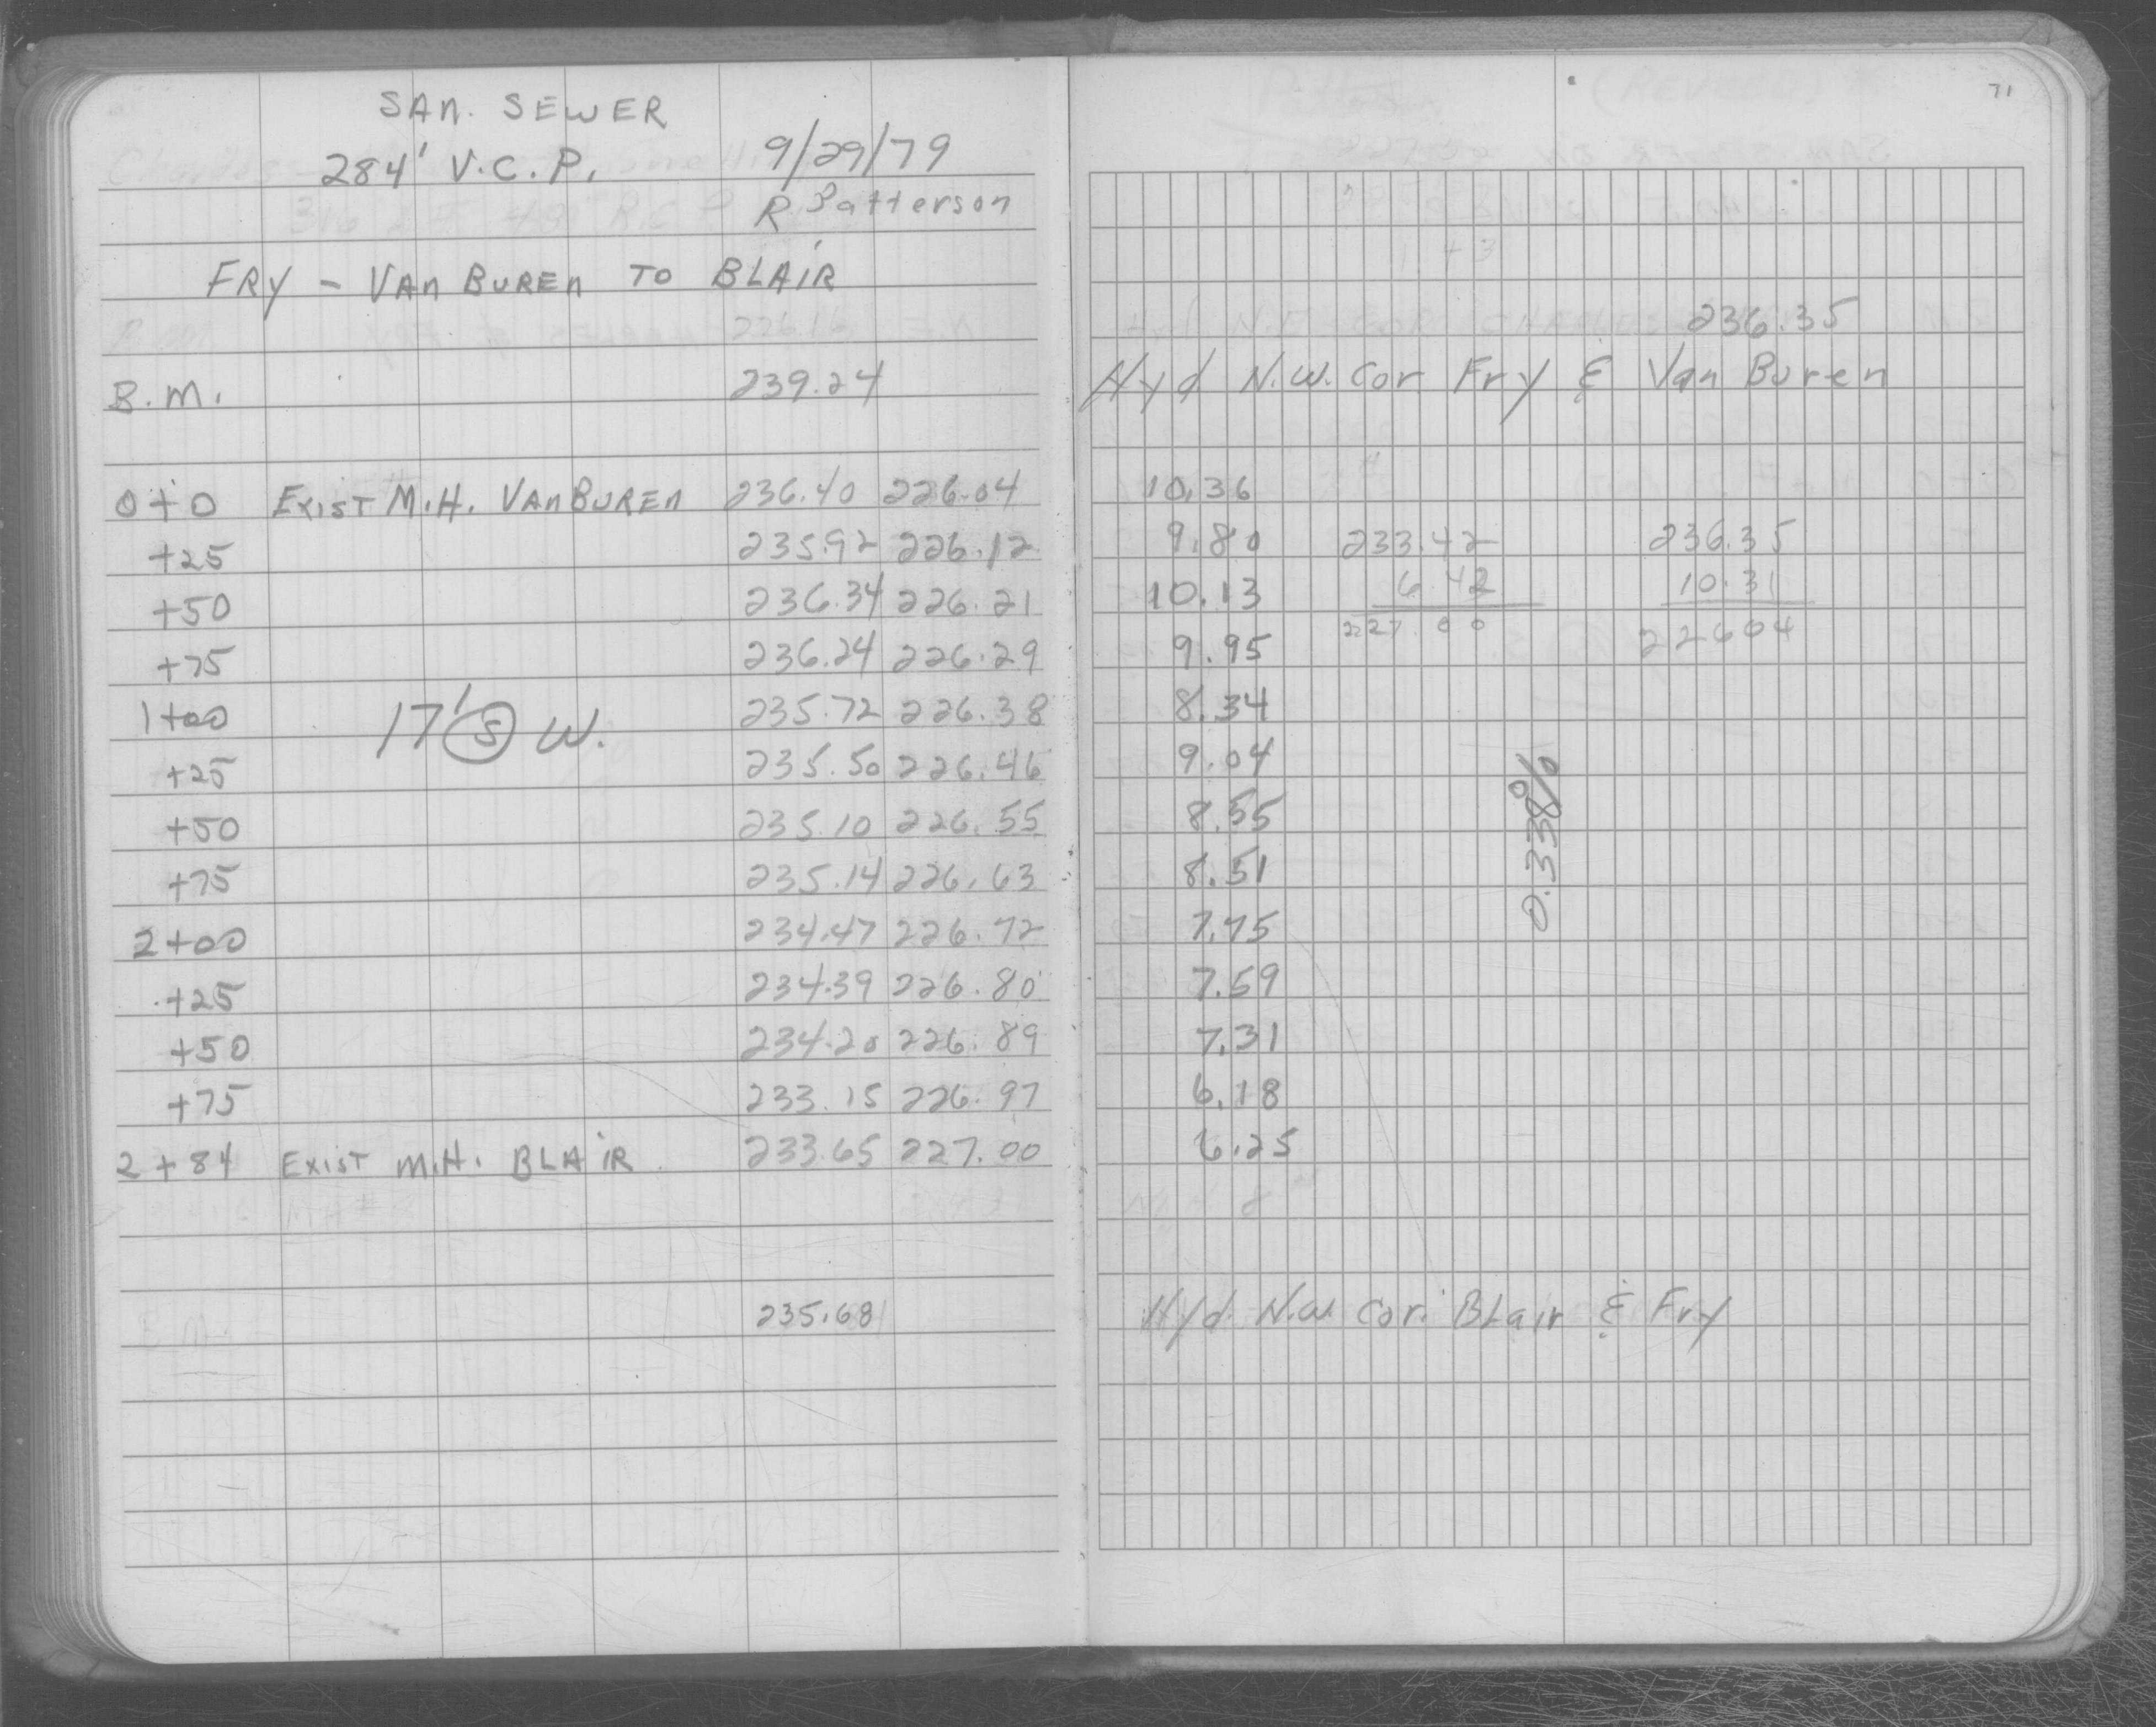 SAN. SEWER
284' V.C.P. 9/29/79
R Patterson
FRY - VAN BUREN TO BLAIR
B.M. 239.24
0+0 EXIST M.H. VANBUREN 236.40 226.04
+25 235.92 226.12
+50 236.34 226.21
+75 236.24 226.29
1+00 17' S W. 235.72 226.38
+25 235.50 226.46
+50 235.10 226.55
+75 235.14 226.63
2+00 234.47 226.72
+25 234.39 226.80
+50 234.20 226.89
+75 233.15 226.97
2+84 EXIST M.H. BLAIR 233.65 227.00
235.68
71
236.35
Hyd N.W. Cor. Fry & Van Buren
10.36
9.80 233.42 236.35
10.13 6.42 10.31
9.95 227.00 22604
8.34
9.04
8.55
8.51
7.75
7.59
7.31
6.18
6.25
0.338%
Hyd. N.W. Cor. BLair & Fry